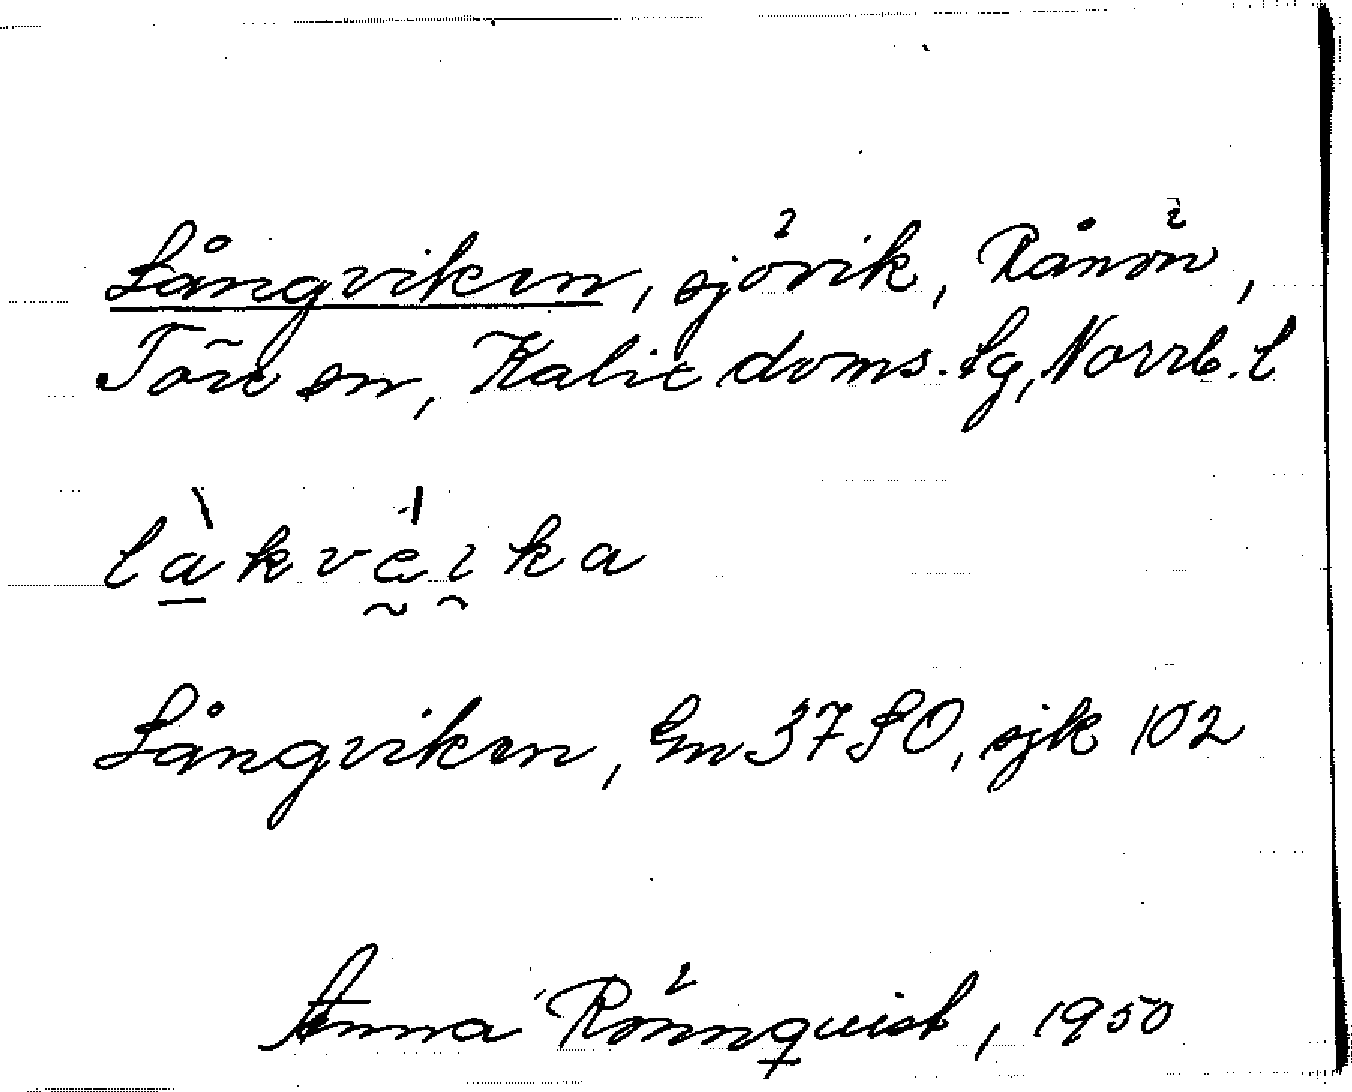 Långviken, sjövik, Rånön,
Töre sn, Kalix doms. lg, Norrb. l
làkvèika
Långviken, Gm 37 SO, sjk 102
Anna Rönnquist, 1950